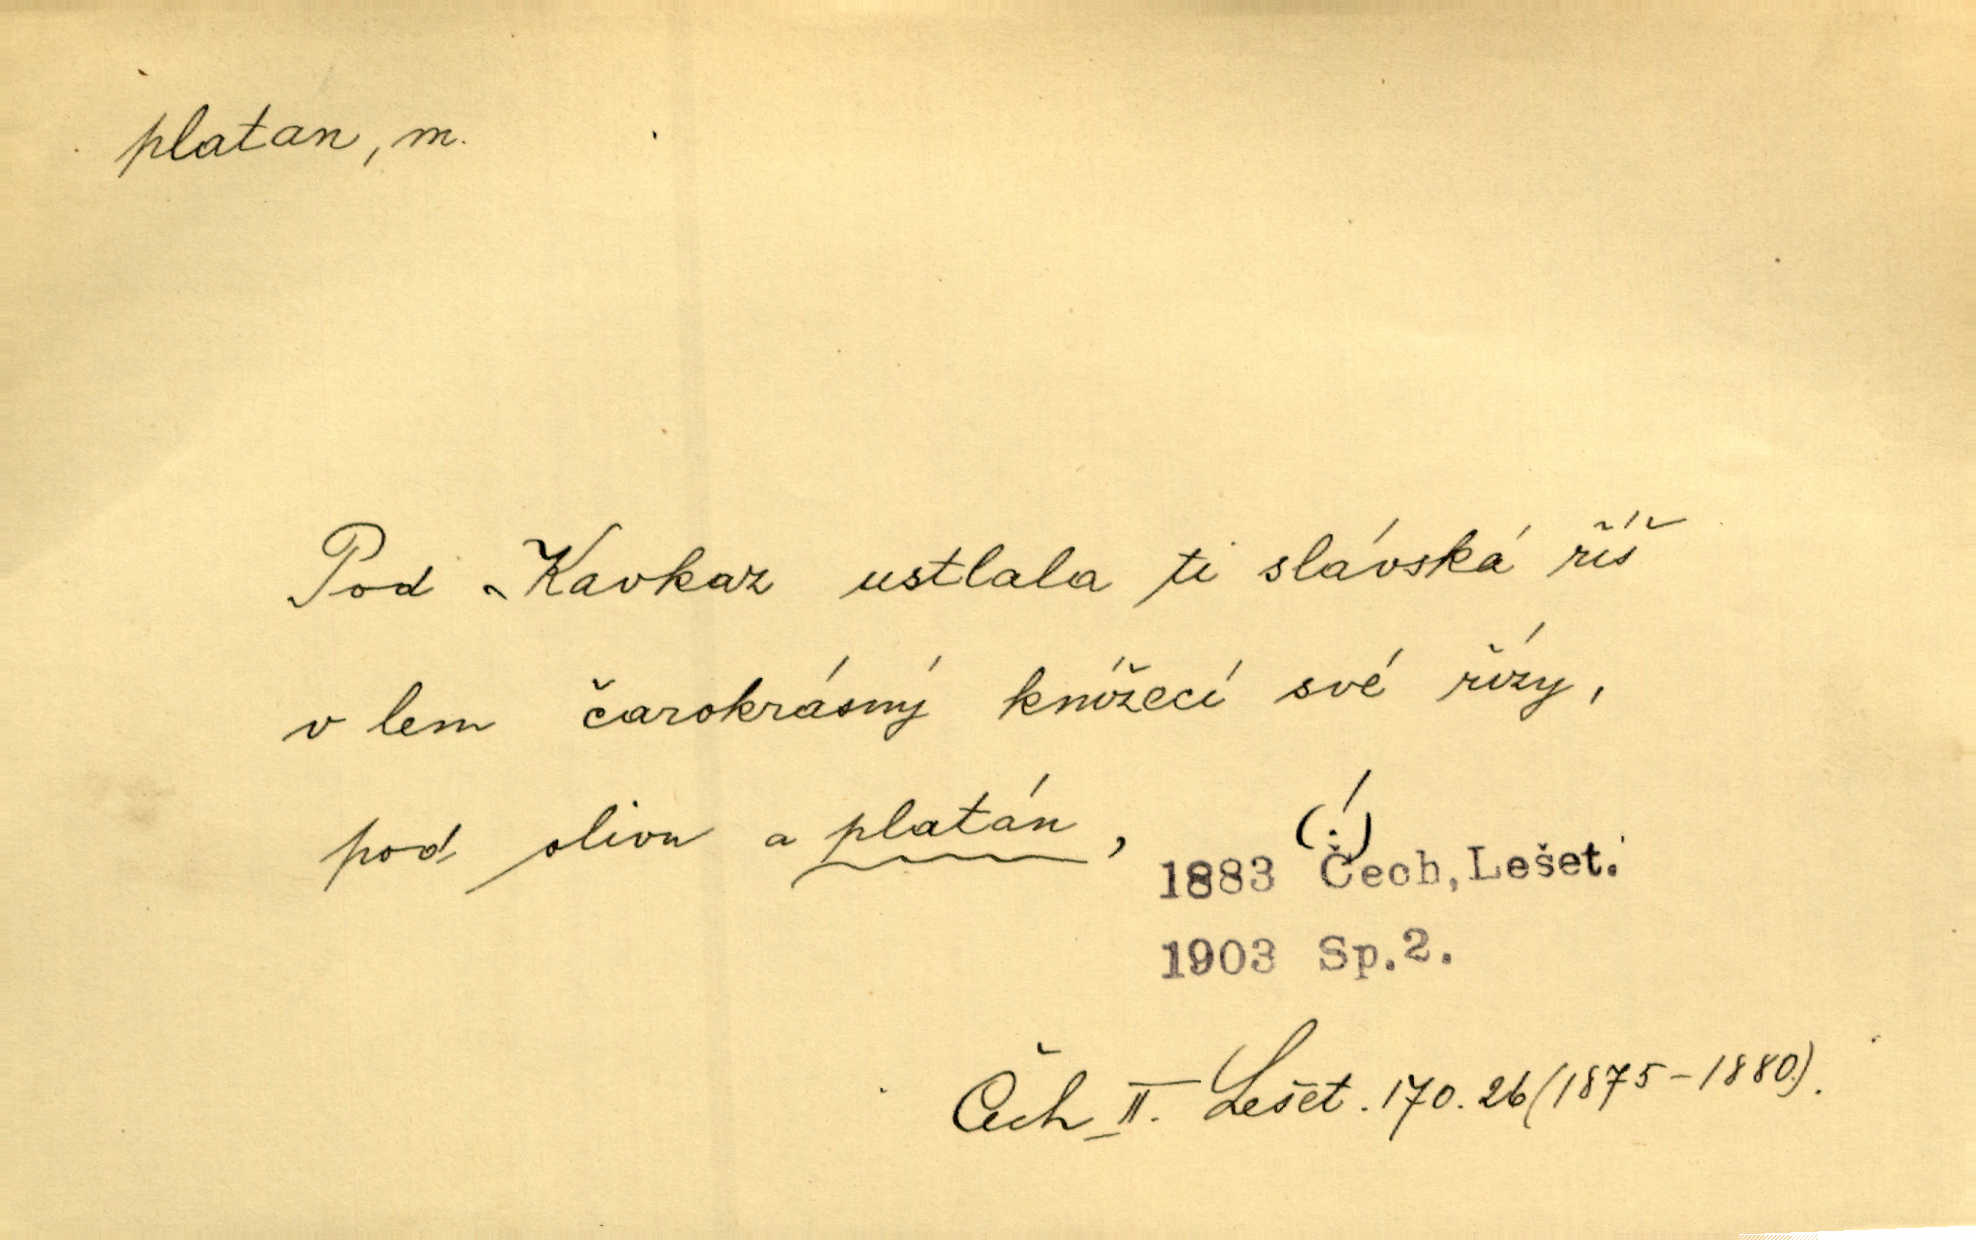 platan, m.
Pod Kavkaz ustlala ti slávská říš
v lem čarokrásný knížecí své řízy,
pod olivu a platán,
(!)
1883 Čech, Lešet.
1903 Sp.2.
Čech II. Lešet. 170. 26 (1875-1880).